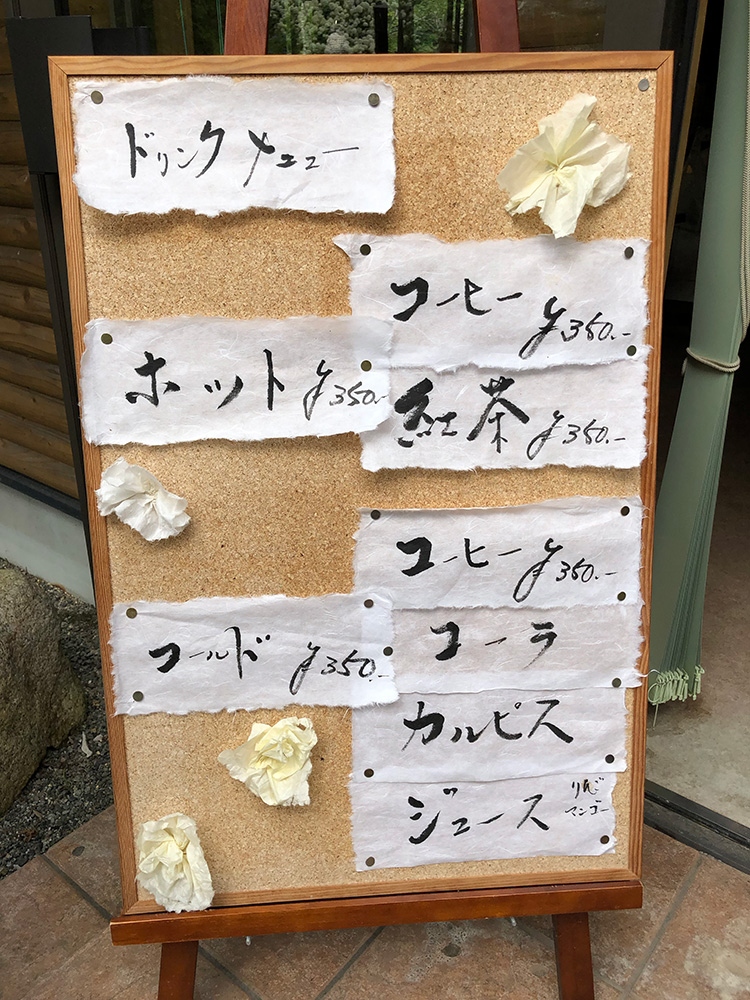 ドリンクメニュー
ホット ¥350.-
コーヒー ¥350.-
紅茶 ¥350.-
コールド ¥350.-
コーヒー ¥350.-
コーラ
カルピス
ジュース りんご
マンゴー